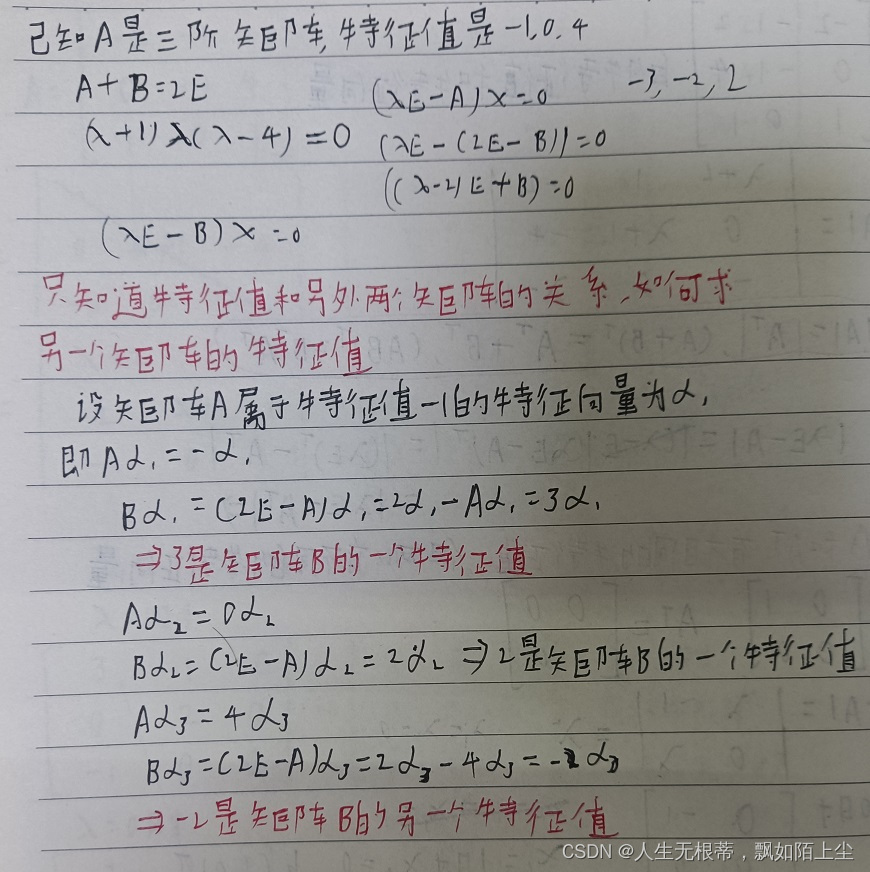 已知A是三阶矩阵,特征值是-1,0,4
A+B=2E
(λE-A)x=0
-3,-2,2
(λ+1)λ(λ-4)=0
(λE-(2E-B))=0
((λ-2)E+B)=0
(λE-B)x=0
只知道特征值和另外两个矩阵的关系,如何求
另一个矩阵的特征值
设矩阵A属于特征值-1的特征向量为α,
即Aα₁=-α₁
Bα₁=(2E-A)α₁=2α₁-Aα₁=3α₁
⇒3是矩阵B的一个特征值
Aα₂=0α₂
Bα₂=(2E-A)α₂=2α₂⇒2是矩阵B的一个特征值
Aα₃=4α₃
Bα₃=(2E-A)α₃=2α₃-4α₃=-2α₃
⇒-2是矩阵B的另一个特征值
CSDN @人生无根蒂，飘如陌上尘